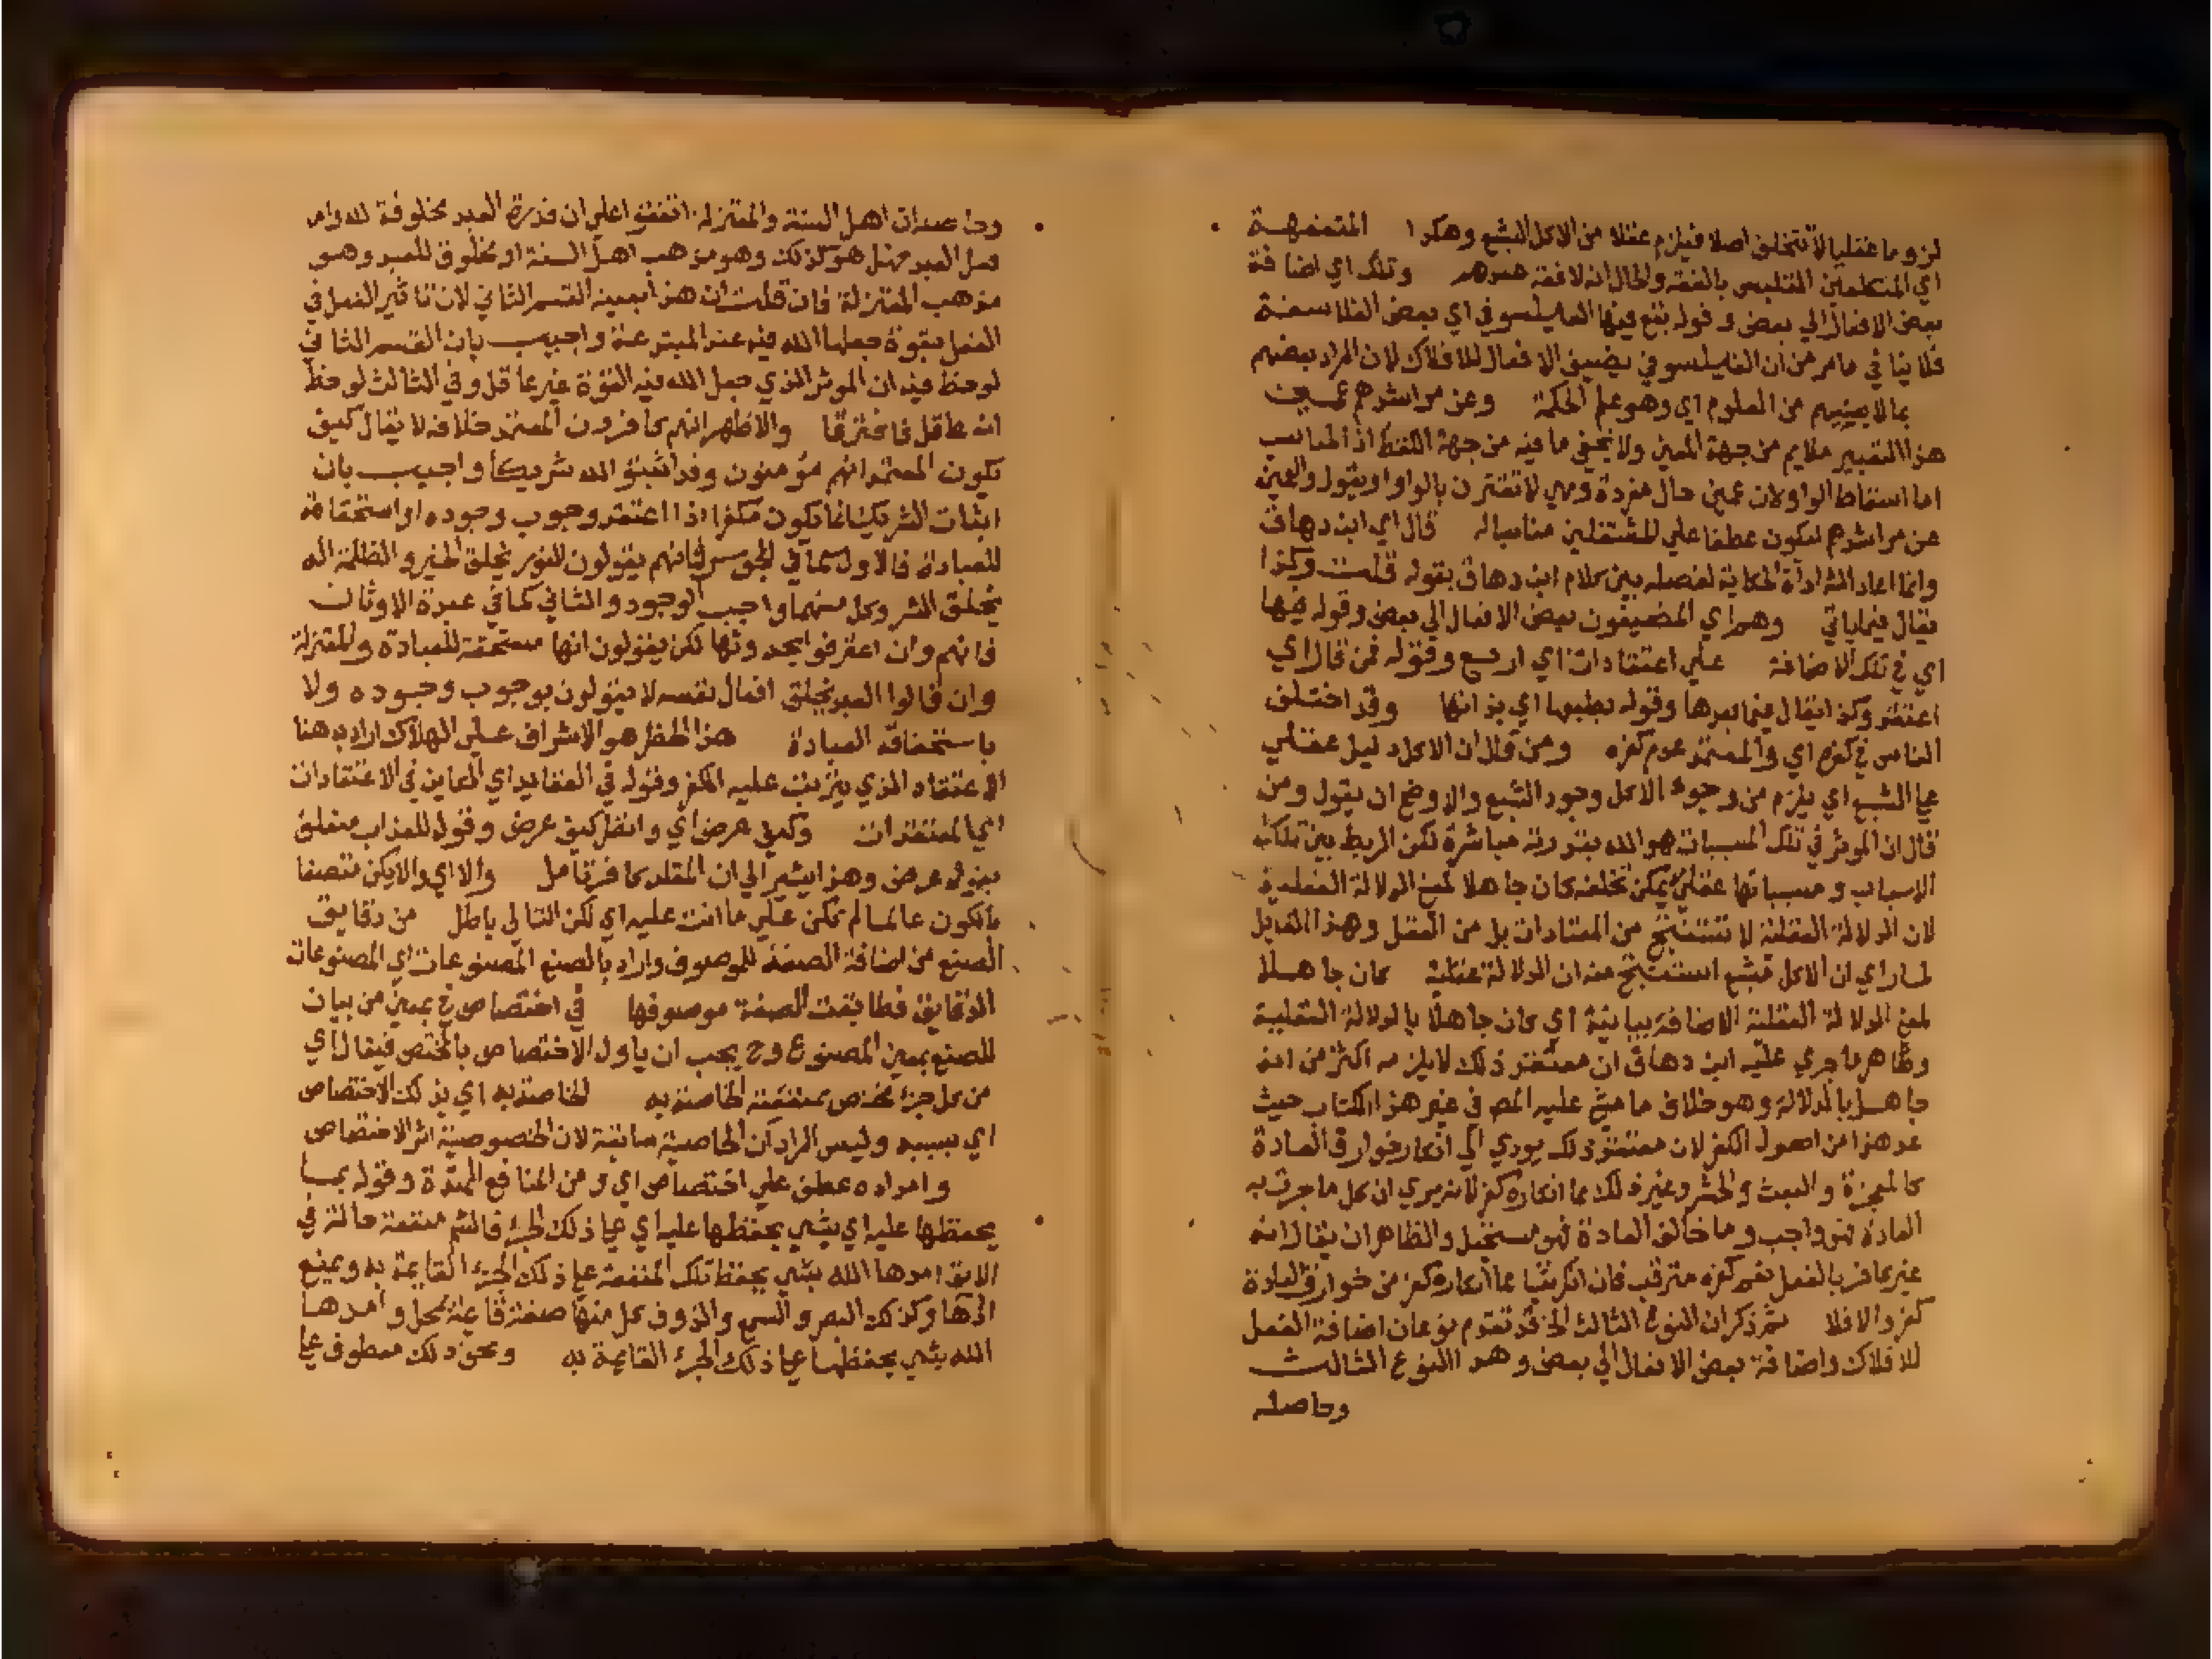 لزوما عقليا لا تتخلف اصلا فيلزم عقلا من الاكل الشبع وهكذا المتفقهة
اي المتكلمين المتلبس بالفقه والحال انه لا فقه عندهم وتلك اي اضافة
بعض الافعال الي بعض وقوله يتبع فيها الفيلسوفي اي بعض الفلاسفة
فلا ينافي ما مر من ان الفيلسوفي يضيف الافعال للافلاك لان المراد بعضهم
بما لا يعنيهم من العلوم اي وهو علم الحكمة وعن مراشدهم عميت
هذا التعبير ملايم من جهة المعني ولا يخفي ما فيه من جهة اللفظ اذ المناسب
اما اسقاط الواو لان عمين حال مفردة وهي لا تقترن بالواو او يقول والعمين
عن مراشدهم ليكون عطفا علي للمشتغلين مناسبا له قال اي ابن دهاق
وانما اعاد الشارح اداة الحكاية لفصله بين كلام ابن دهاق بقوله قلت وكذا
يقال فيما ياتي وهم اي المضيفون بعض الافعال الي بعض وقوله فيها
اي في تلك الاضافة علي اعتقادات اي اربع وقوله فمن قال اي
اعتقد وكذا يقال فيما بعدها وقوله بطبعها اي بذاتها وقد اختلف
الناس في كفره اي والمعتمد عدم كفره ومن قال ان الاكل دليل عقلي
علي الشبع اي يلزم من وجود الاكل وجود الشبع والاوضح ان يقول ومن
قال ان الموثر في تلك المسببات هو الله بقدرته مباشرة لكن الربط بين تلك
الاسباب ومسبباتها عقلي لا يمكن تخلفه كان جاهلا لمعني الدلالة العقلية
لان الدلالة العقلية لا تستنتج من المعتادات بل من العقل وهذا القايل
لما راي ان الاكل مشبع استنتج منه ان الدلالة عقلية كان جاهلا
لمعني الدلالة العقلية الاضافة بيانية اي كان جاهلا بالدلالة العقلية
وظاهر ما جري عليه ابن دهاق ان معتقد ذلك لا يلزمه اكثر من انه
جاهل بالدلالة وهو خلاف ما مشي عليه المص في غير هذا الكتاب حيث
عد هذا من اصول الكفر لان معتقد ذلك يودي الي انكار خوارق العادة
كالمعجزة والبعث والحشر وغير ذلك مما انكاره كفر لانه يري ان كل ما جرت به
العادة فهو واجب وما خالف العادة فهو مستحيل والظاهر ان يقال انه
غير كافر بالفعل نعم كفره مترقب فان انكر شيا مما انكاره كفر من خوارق العادة
كفر والا فلا ثم ذكر ان النوع الثالث الخ قد تقدم نوعان اضافة الفعل
للافلاك واضافة بعض الافعال الي بعض وهذا النوع الثالث
وحاصله
وحاصله ان اهل السنة والمعتزلة اتفقوا علي ان قدرة العبد مخلوقة لله واما
فعل العبد فهل هو كذلك وهو مذهب اهل السنة او مخلوق للعبد وهو
مذهب المعتزلة فان قلت ان هذا بعينه القسم الثاني لان تاثير الفعل في
الفعل بقوة جعلها الله فيه عند المبتدعة واجيب بان القسم الثاني
لوحظ فيه ان الموثر الذي جعل الله فيه القوة غير عاقل وفي الثالث لوحظ
انه عاقل فافترقا والاظهر انهم كافرون المعتمد خلافه لا يقال كيف
يكون المعتمد انهم مؤمنون وقد اثبتوا لله شريكا واجيب بان
اثبات الشريك انما يكون مكفرا اذا اعتقد وجوب وجوده او استحقاقه
للعبادة فالاول كما في المجوس فانهم يقولون النور يخلق الخير والظلمة اله
يخلق الشر وكل منهما واجب الوجود والثاني كما في عبدة الاوثان
فانهم وان اعترفوا بحدوثها لكن يقولون انها مستحقة للعبادة والمعتزلة
وان قالوا العبد يخلق افعال نفسه لا يقولون بوجوب وجوده ولا
باستحقاقه العبادة هذا الخطر هو الاشراف علي الهلاك اراد به هنا
الاعتقاد الذي يترتب عليه الكفر وقوله في العقايد اي الكاين في الاعتقادات
اي المعتقدات وكيف عرض اي وانظر كيف عرض وقوله للعذاب متعلق
بقوله عرض وهذا يشير الي ان المقلد كافر تامل والا اي والا يكن متصفا
بالكون عالما لم تكن علي ما انت عليه اي لكن التالي باطل من دقايق
الصنع من اضافة الصفة للموصوف واراد بالصنع المصنوعات اي المصنوعات
الدقايق فطابقت الصفة موصوفها في اختصاص في بمعني من بيان
للصنع بمعني المصنوع وح يجب ان ياول الاختصاص بالمختص فيقال اي
من كل جزء مختص بمنفعته الخاصة به الخاصة به اي بذلك الاختصاص
اي بسببه وليس المراد ان الخاصية سابقة لان الخصوصية اثر الاختصاص
وامداده عطف علي اختصاص اي ومن المنافع الممدة وقوله بما
يحفظها عليه اي بشي يحفظها عليه اي علي ذلك الجزء فالشم منفعة حالة في
الانف امدها الله بشي يحفظ تلك المنفعة علي ذلك الجزء القايمة به ويمنع
اذاها وكذلك البصر والسمع والذوق كل منها صفة قايمة بمحل وامدها
الله بشي يحفظها علي ذلك الجزء القايمة به ونحو ذلك معطوف علي